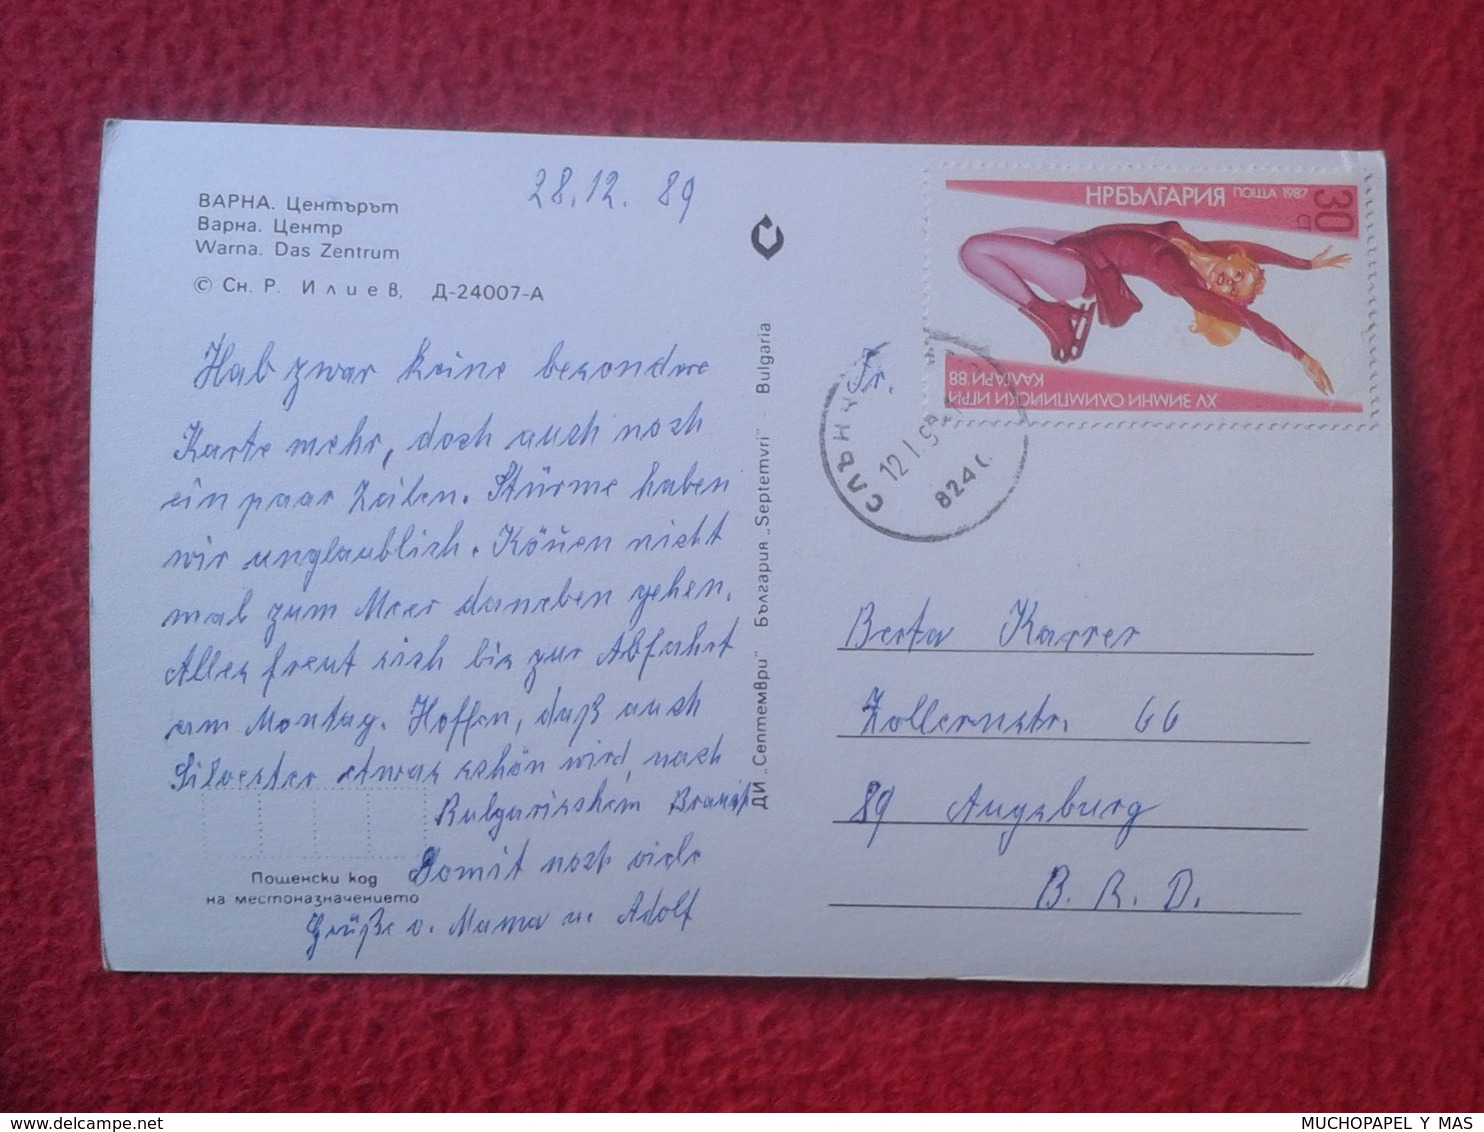 28.12. 89
ВАРНА. Центърът
Варна. Центр
Warna. Das Zentrum
© Сн. Р. Илиев, Д-24007-А
Hab zwar keine besondere
Karte mehr, doch auch noch
ein paar Zeilen. Stürme haben
wir unglaublich. Können nicht
mal zum Meer daneben gehen.
Alles freut sich bis zur Abfahrt
am Montag. Hoffen, daß auch
Silvester etwas schön wird, nach
Bulgarischem Brauch
Somit noch viele
Grüße v. Mama u. Adolf
Пощенски код
на местоназначението
ДИ „Септември" България „Septemvri" - Bulgaria
НРБЪЛГАРИЯ ПОЩА 1987
30 СТ
XV ЗИМНИ ОЛИМПИЙСКИ ИГРИ
КАЛГАРИ'88
12.I.
Fr.
Berta Karrer
Zollernstr. 66
89 Augsburg
B. R. D.
MUCHOPAPEL Y MAS